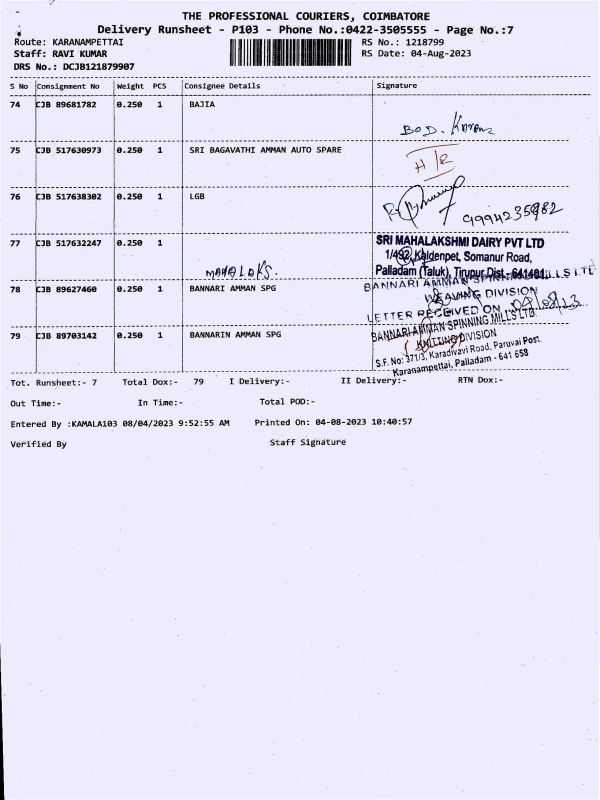 THE PROFESSIONAL COURIERS, COIMBATORE
Delivery Runsheet - P103 - Phone No.:0422-3505555 - Page No.:7
Route: KARANAMPETTAI
RS No.: 1218799
Staff: RAVI KUMAR
RS Date: 04-Aug-2023
DRS No.: DCJB121879907
S No Consignment No Weight PCS Consignee Details Signature
74 CJB 89681782 0.250 1 BAJIA
75 CJB 517630973 0.250 1 SRI BAGAVATHI AMMAN AUTO SPARE
H/R
76 CJB 517638302 0.250 1 LGB
77 CJB 517632247 0.250 1
SRI MAHALAKSHMI DAIRY PVT LTD
1/492, Kaldenpet, Somanur Road,
Palladam (Taluk), Tirupur Dist - 641401
78 CJB 89627460 0.250 1 BANNARI AMMAN SPG
BANNARI AMMAN SPINNING MILLS LTD
WEAVING DIVISION
LETTER RECEIVED ON 04/08/23
79 CJB 89703142 0.250 1 BANNARIN AMMAN SPG
BANNARI AMMAN SPINNING MILLS LTD
KNITTING DIVISION
S.F. No: 371/3, Karadivavi Road, Paruvai Post.
Karanampettai, Palladam - 641 658
Tot. Runsheet:- 7 Total Dox:- 79 I Delivery:- II Delivery:- RTN Dox:-
Out Time:- In Time:- Total POD:-
Entered By :KAMALA103 08/04/2023 9:52:55 AM Printed On: 04-08-2023 10:40:57
Verified By Staff Signature